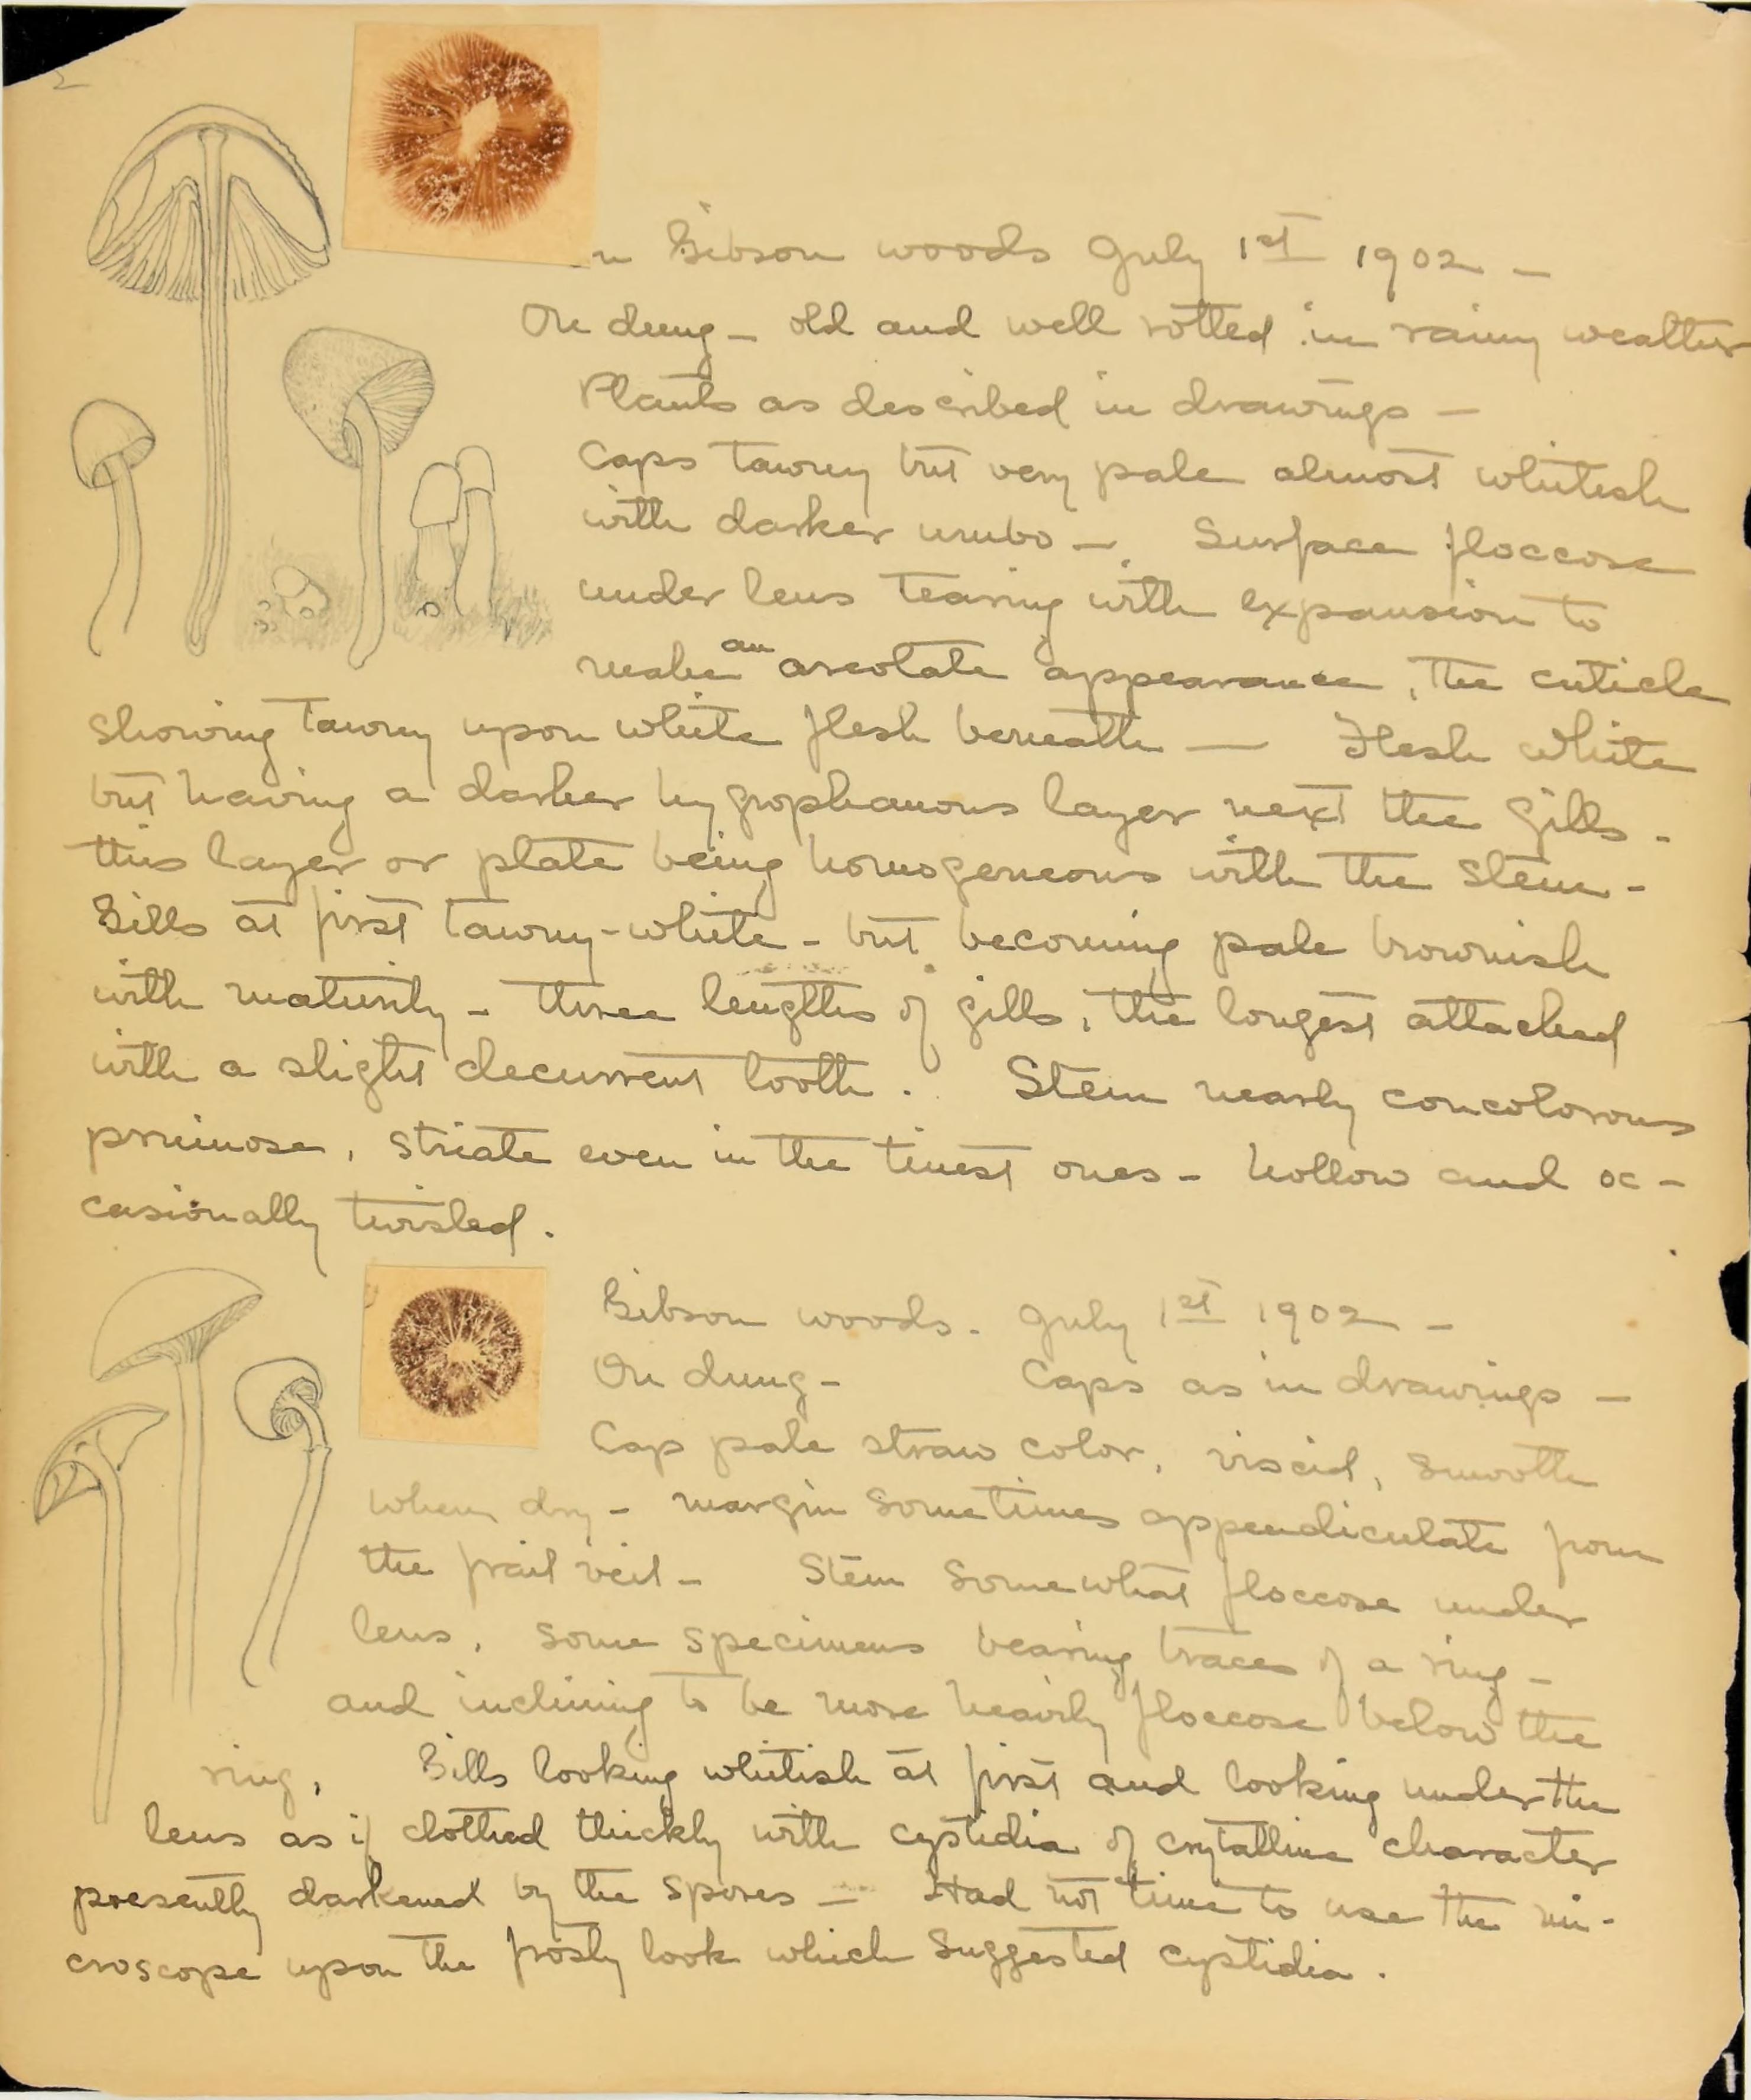 2
n Gibson woods July 1st 1902 —
On dung — old and well rotted in rainy weather
Plants as described in drawings —
Caps tawny but very pale almost whitish
with darker umbo —. Surface floccose
under lens tearing with expansion to
make an areolate appearance, the cuticle
showing tawny upon white flesh beneath — Flesh white
but having a darker hygrophanous layer next the gills -
this layer or plate being homogeneous with the stem -
Gills at first tawny-white - but becoming pale brownish
with maturity - three lengths of gills, the longest attached
with a slight decurrent tooth. Stem nearly concolorous
pruinose, striate even in the tinest ones - hollow and oc-
casionally twisted.
Gibson woods. July 1st 1902 -
On dung - Caps as in drawings —
Cap pale straw color, viscid, smooth
when dry - margin sometimes appendiculate from
the frail veil - Stem somewhat floccose under
lens, some specimens bearing traces of a ring -
and inclining to be more heavily floccose below the
ring, Gills looking whitish at first and looking under the
lens as if clothed thickly with cystidia of crytalline character
presently darkened by the spores — Had not time to use the mi-
croscope upon the frosty look which suggested cystidia.
1